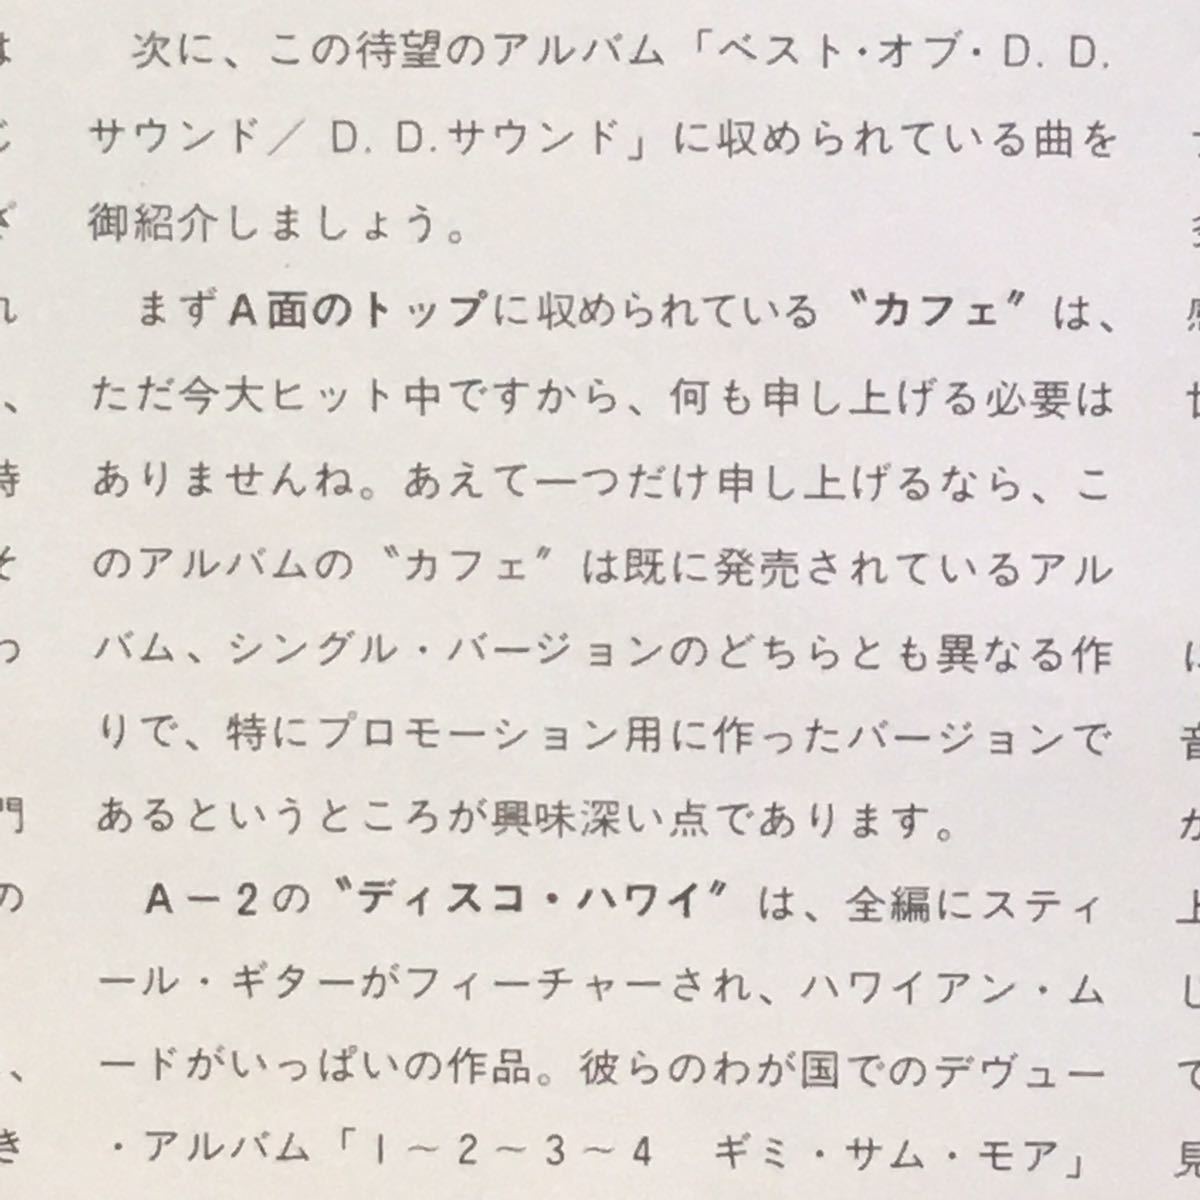 次に、この待望のアルバム「ベスト・オブ・D. D.
サウンド／ D. D.サウンド」に収められている曲を
御紹介しましょう。
まずA面のトップに収められている〝カフェ〞は、
ただ今大ヒット中ですから、何も申し上げる必要は
ありませんね。あえて一つだけ申し上げるなら、こ
のアルバムの〝カフェ〞は既に発売されているアル
バム、シングル・バージョンのどちらとも異なる作
りで、特にプロモーション用に作ったバージョンで
あるというところが興味深い点であります。
A－2の〝ディスコ・ハワイ〞は、全編にスティ
ール・ギターがフィーチャーされ、ハワイアン・ム
ードがいっぱいの作品。彼らのわが国でのデヴュー
・アルバム「1～2～3～4　ギミ・サム・モア」